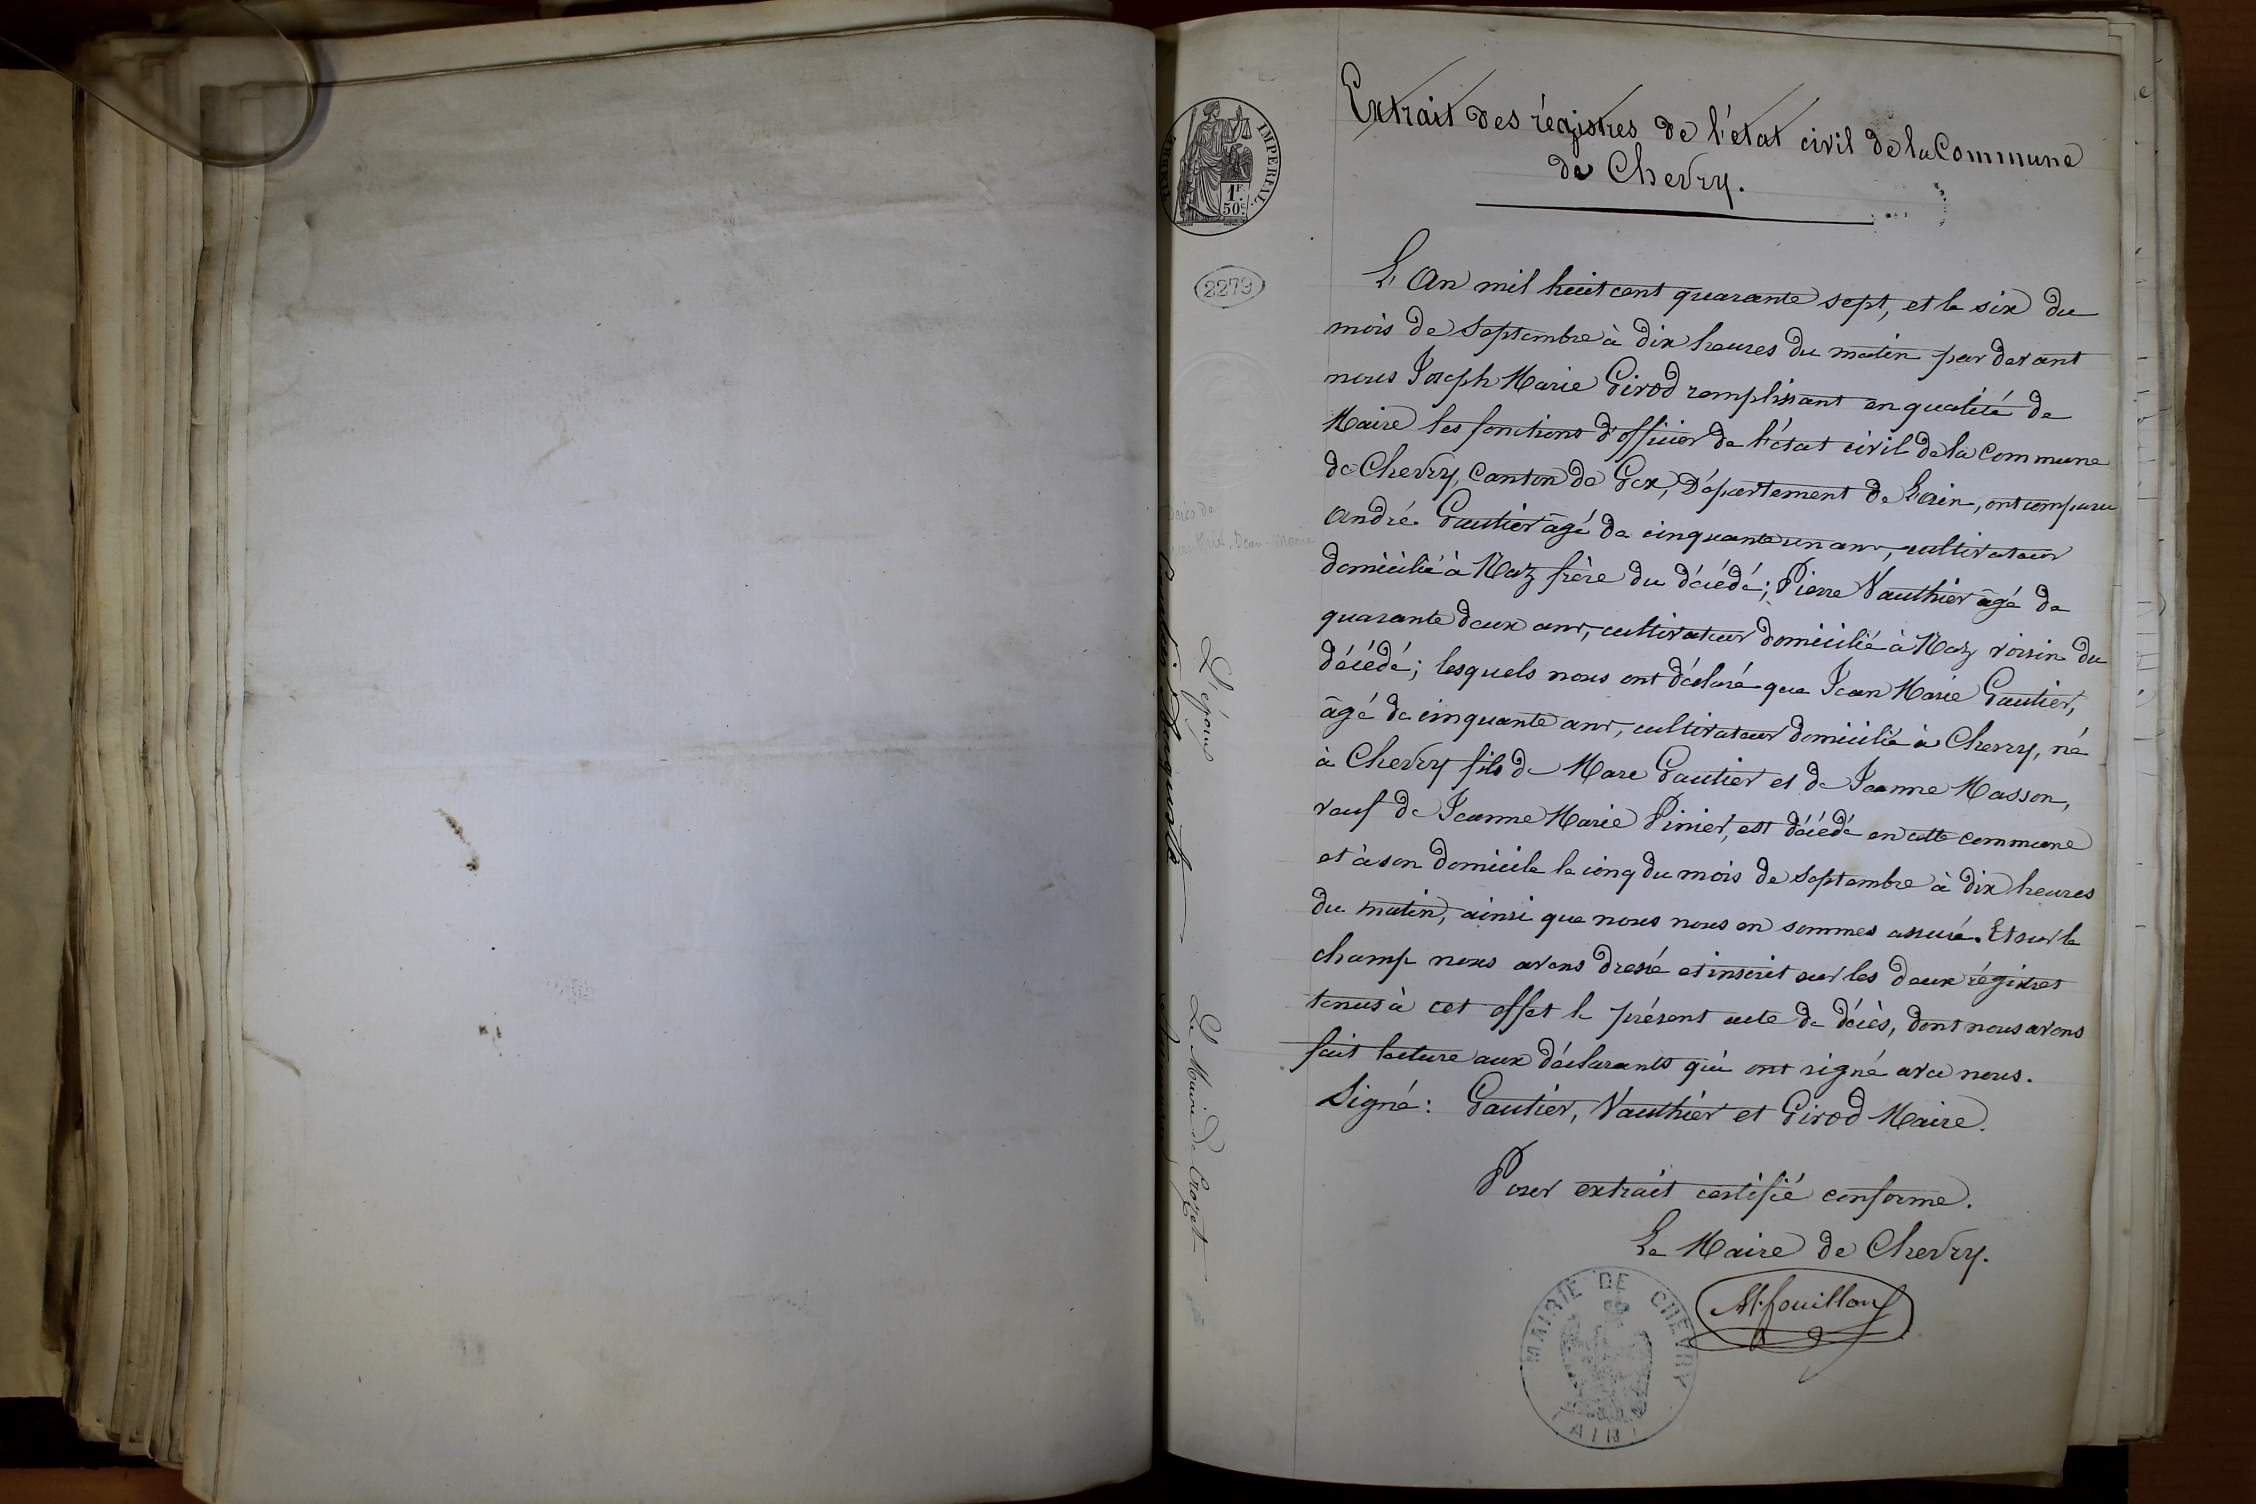 Extrait des régistres de l'état civil de la Commune
de Chevry.
TIMBRE IMPERIAL.
1F.
50c.
2279
L'An mil huit cent quarante sept, et le six du
mois de Septembre à dix heures du matin par devant
nous Joseph Marie Girod remplissant en qualité de
Maire les fonctions d'officier de l'état civil de la commune
de Chevry, Canton de Gex, Département de L'ain, ont comparu
André Gautier âgé de cinquante un ans, cultivateur
domicilié à Naz frère du décédé; Pierre Vauthier âgé de
quarante deux ans, cultivateur domicilié à Naz voisin du
décédé; lesquels nous ont déclaré que Jean Marie Gautier,
âgé de cinquante ans, cultivateur domicilié à Chevry, né
à Chevry fils de Marc Gautier et de Jeanne Masson,
veuf de Jeanne Marie Pinier, est décédé en cette commune
et à son domicile le cinq du mois de Septembre à dix heures
du matin, ainsi que nous nous en sommes assuré. Et sur le
champ nous avons dressé et inscrit sur les deux régistres
tenus à cet effet le présent acte de décès, dont nous avons
fait lecture aux déclarants qui ont signé avec nous.
Signé: Gautier, Vauthier et Girod Maire.
Pour extrait certifié conforme.
Le Maire de Chevry.
MAIRIE DE CHEVRY
(AIN)
L'époux
Le Maire de Crozet